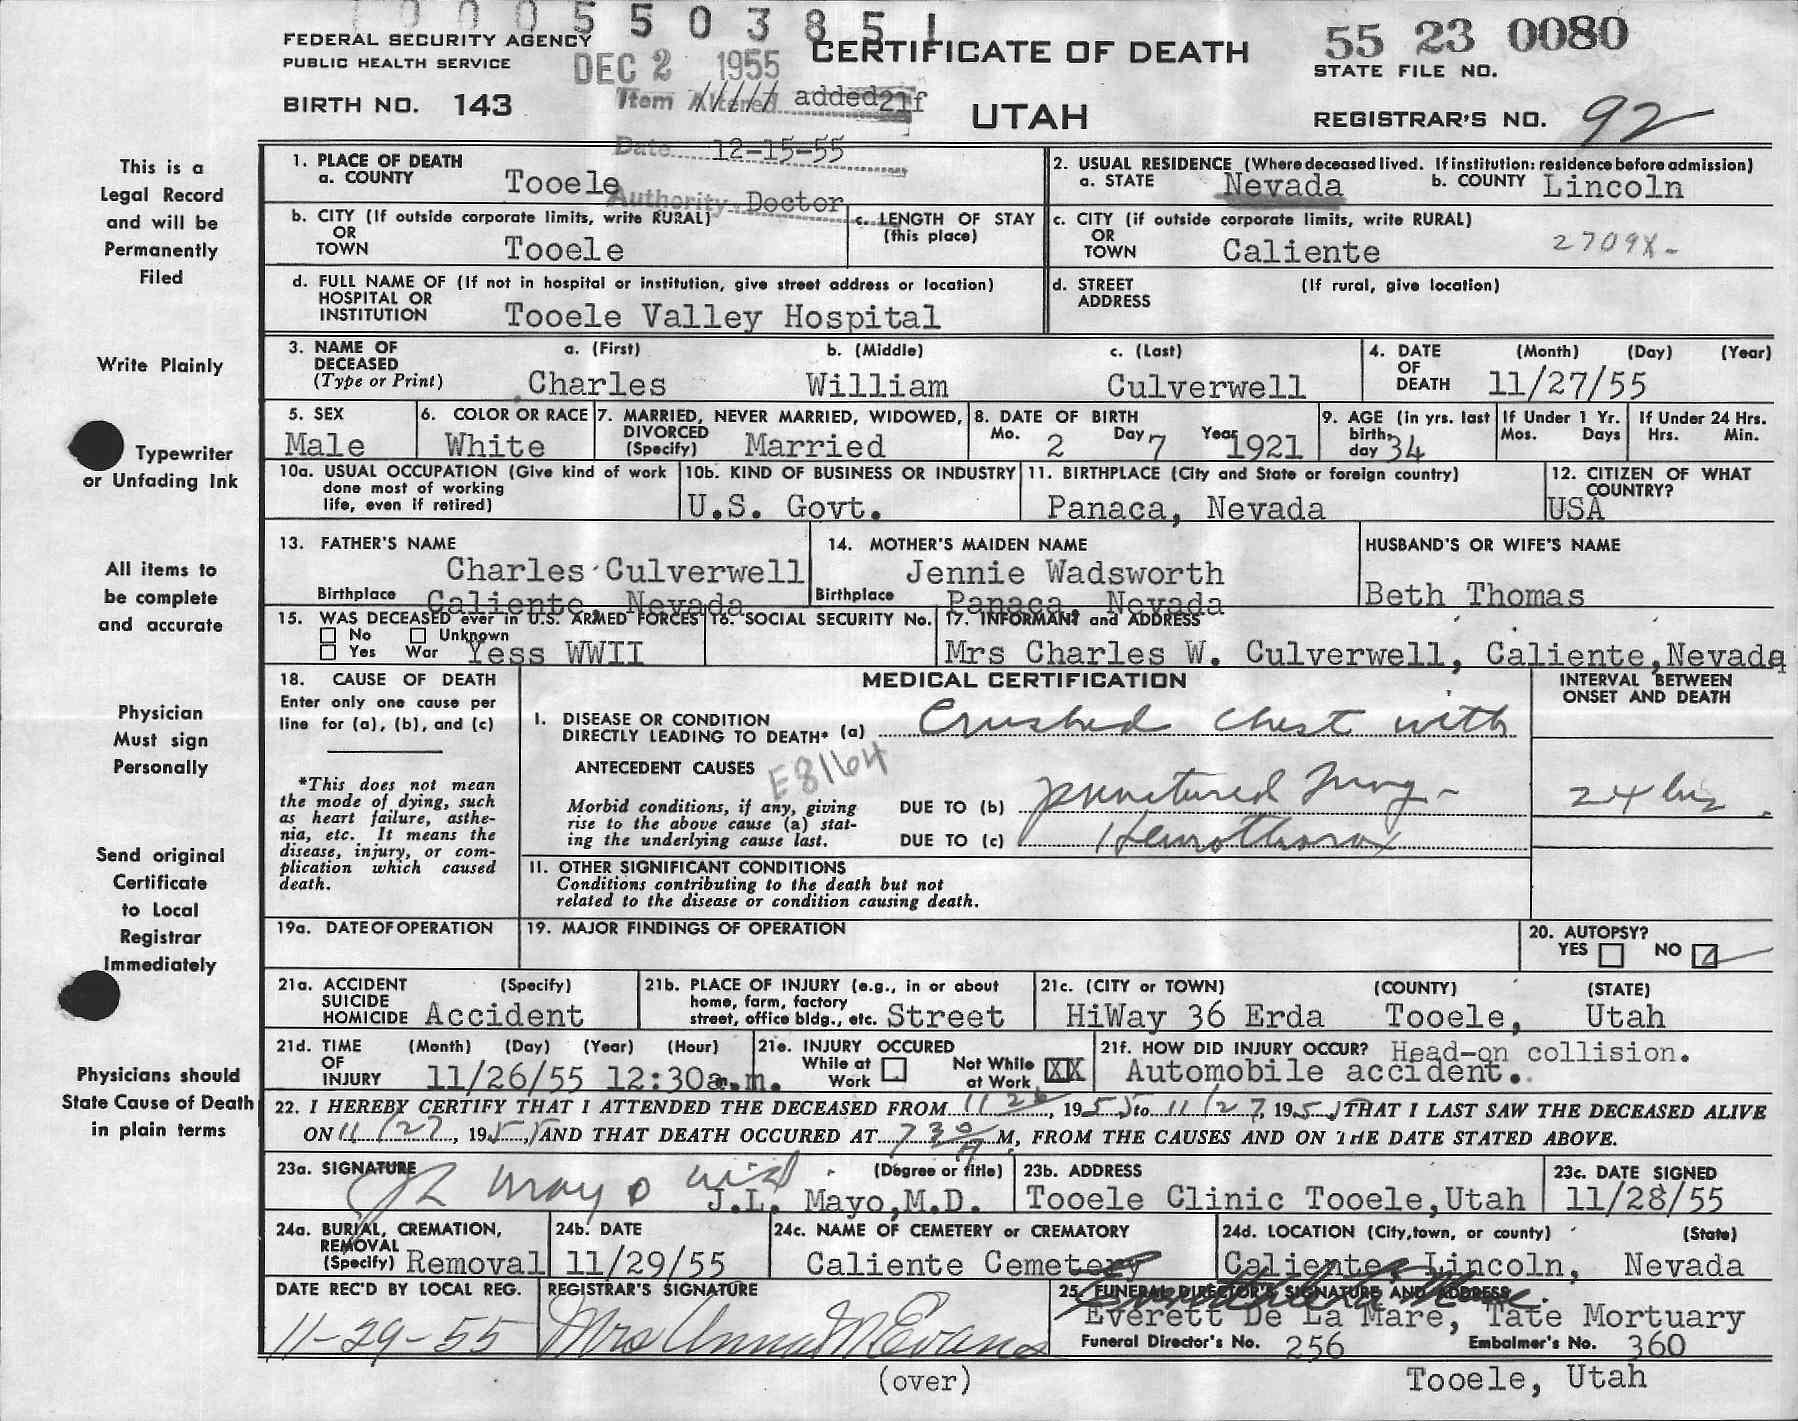 0 0 0 5 5 0 3 8 5 1
FEDERAL SECURITY AGENCY
PUBLIC HEALTH SERVICE
DEC 2 1955
CERTIFICATE OF DEATH
55 23 0080
STATE FILE NO.
BIRTH NO. 143
Item Altered added 21f
UTAH
REGISTRAR'S NO. 92
Date 12-15-55
Authority Doctor
This is a
Legal Record
and will be
Permanently
Filed
1. PLACE OF DEATH
a. COUNTY Tooele
2. USUAL RESIDENCE (Where deceased lived. If institution: residence before admission)
a. STATE Nevada b. COUNTY Lincoln
b. CITY (If outside corporate limits, write RURAL)
OR
TOWN Tooele
c. LENGTH OF STAY
(this place)
c. CITY (if outside corporate limits, write RURAL)
OR
TOWN Caliente 2709X-
d. FULL NAME OF (If not in hospital or institution, give street address or location)
HOSPITAL OR
INSTITUTION Tooele Valley Hospital
d. STREET (If rural, give location)
ADDRESS
Write Plainly
3. NAME OF a. (First) b. (Middle) c. (Last)
DECEASED
(Type or Print) Charles William Culverwell
4. DATE (Month) (Day) (Year)
OF
DEATH 11/27/55
Typewriter
or Unfading Ink
5. SEX
Male
6. COLOR OR RACE
White
7. MARRIED, NEVER MARRIED, WIDOWED,
DIVORCED
(Specify) Married
8. DATE OF BIRTH
Mo. 2 Day 7 Year 1921
9. AGE (in yrs. last
birth
day 34
If Under 1 Yr.
Mos. Days
If Under 24 Hrs.
Hrs. Min.
10a. USUAL OCCUPATION (Give kind of work
done most of working
life, even if retired)
10b. KIND OF BUSINESS OR INDUSTRY
U.S. Govt.
11. BIRTHPLACE (City and State or foreign country)
Panaca, Nevada
12. CITIZEN OF WHAT
COUNTRY?
USA
All items to
be complete
and accurate
13. FATHER'S NAME
Charles Culverwell
Birthplace Caliente, Nevada
14. MOTHER'S MAIDEN NAME
Jennie Wadsworth
Birthplace Panaca, Nevada
HUSBAND'S OR WIFE'S NAME
Beth Thomas
15. WAS DECEASED ever in U.S. ARMED FORCES
No Unknown
Yes War Yess WWII
16. SOCIAL SECURITY No.
17. INFORMANT and ADDRESS
Mrs Charles W. Culverwell, Caliente,Nevada
Physician
Must sign
Personally
18. CAUSE OF DEATH
Enter only one cause per
line for (a), (b), and (c)
*This does not mean
the mode of dying, such
as heart failure, asthe-
nia, etc. It means the
disease, injury, or com-
plication which caused
death.
MEDICAL CERTIFICATION
INTERVAL BETWEEN
ONSET AND DEATH
I. DISEASE OR CONDITION
DIRECTLY LEADING TO DEATH* (a) Crushed chest with
ANTECEDENT CAUSES E8164
Morbid conditions, if any, giving
rise to the above cause (a) stat-
ing the underlying cause last.
DUE TO (b) punctured lung - 24 hrs.
DUE TO (c) Hemothorax
II. OTHER SIGNIFICANT CONDITIONS
Conditions contributing to the death but not
related to the disease or condition causing death.
Send original
Certificate
to Local
Registrar
Immediately
19a. DATE OF OPERATION
19. MAJOR FINDINGS OF OPERATION
20. AUTOPSY?
YES NO
21a. ACCIDENT (Specify)
SUICIDE
HOMICIDE Accident
21b. PLACE OF INJURY (e.g., in or about
home, farm, factory
street, office bldg., etc. Street
21c. (CITY or TOWN) (COUNTY) (STATE)
HiWay 36 Erda Tooele, Utah
Physicians should
State Cause of Death
in plain terms
21d. TIME (Month) (Day) (Year) (Hour)
OF
INJURY 11/26/55 12:30a.m.
21e. INJURY OCCURED
While at Work Not While at Work XX
21f. HOW DID INJURY OCCUR? Head-on collision.
Automobile accident.
22. I HEREBY CERTIFY THAT I ATTENDED THE DECEASED FROM 11 26, 1955 to 11/27, 1955 THAT I LAST SAW THE DECEASED ALIVE
ON 11/27, 1955, AND THAT DEATH OCCURED AT 7 30 A M, FROM THE CAUSES AND ON THE DATE STATED ABOVE.
23a. SIGNATURE (Degree or title)
J L Mayo MD
J.L. Mayo,M.D.
23b. ADDRESS
Tooele Clinic Tooele,Utah
23c. DATE SIGNED
11/28/55
24a. BURIAL, CREMATION,
REMOVAL
(Specify) Removal
24b. DATE
11/29/55
24c. NAME OF CEMETERY or CREMATORY
Caliente Cemetery
24d. LOCATION (City,town, or county) (State)
Caliente, Lincoln, Nevada
DATE REC'D BY LOCAL REG.
11-29-55
REGISTRAR'S SIGNATURE
Mrs Anna M Evans
25. FUNERAL DIRECTOR'S SIGNATURE AND ADDRESS
Everett De La Mare, Tate Mortuary
Funeral Director's No. 256 Embalmer's No. 360
(over)
Tooele, Utah